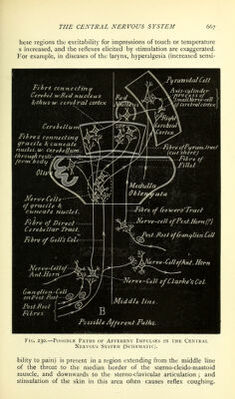 THE CENTRAL NERVOUS SYSTEM 667
these regions the excitability for impressions of touch or temperature
is increased, and the reflexes elicited by stimulation are exaggerated.
For example, in diseases of the larynx, hyperalgesia (increased sensi-
Pyramidal Cell
Fibre connecting
Cerebel. w Red nucleus
& thus w cerebral cortex
Axis-cylinder
process of
Small Nerve-cell
of Cerebral cortex
Red
Right
Cortex
Cerebellum
Fibres connecting
gracile & cuneate
nuclei w Cerebellum
through resti-
form body
Fibre of Pyram. tract
(cut short)
Fibre of
Fillet
Medulla
Oblongata
Nerve Cells
of gracile &
cuneate nuclei.
Fibre of Direct
Cerebellar Tract.
Fibre of Goll's Col.
Fibre of Gowers' Tract
Nerve-cell of Post. Horn (?)
Post. Root of Ganglion Cell
Nerve-cell of
Ant. Horn
Nerve-Cell of Ant. Horn
Nerve-Cell of Clarke's Col.
Ganglion-Cell
on Post. Root
Post. Root
Fibres
Middle line.
B
Possible Afferent Paths.
FIG. 230.—POSSIBLE PATHS OF AFFERENT IMPULSES IN THE CENTRAL
NERVOUS SYSTEM (SCHEMATIC).
bility to pain) is present in a region extending from the middle line
of the throat to the median border of the sterno-cleido-mastoid
muscle, and downwards to the sterno-clavicular articulation; and
stimulation of the skin in this area often causes reflex coughing.